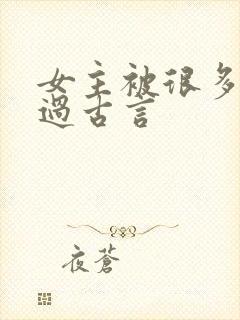 女主被很多
過古言
夜蒼